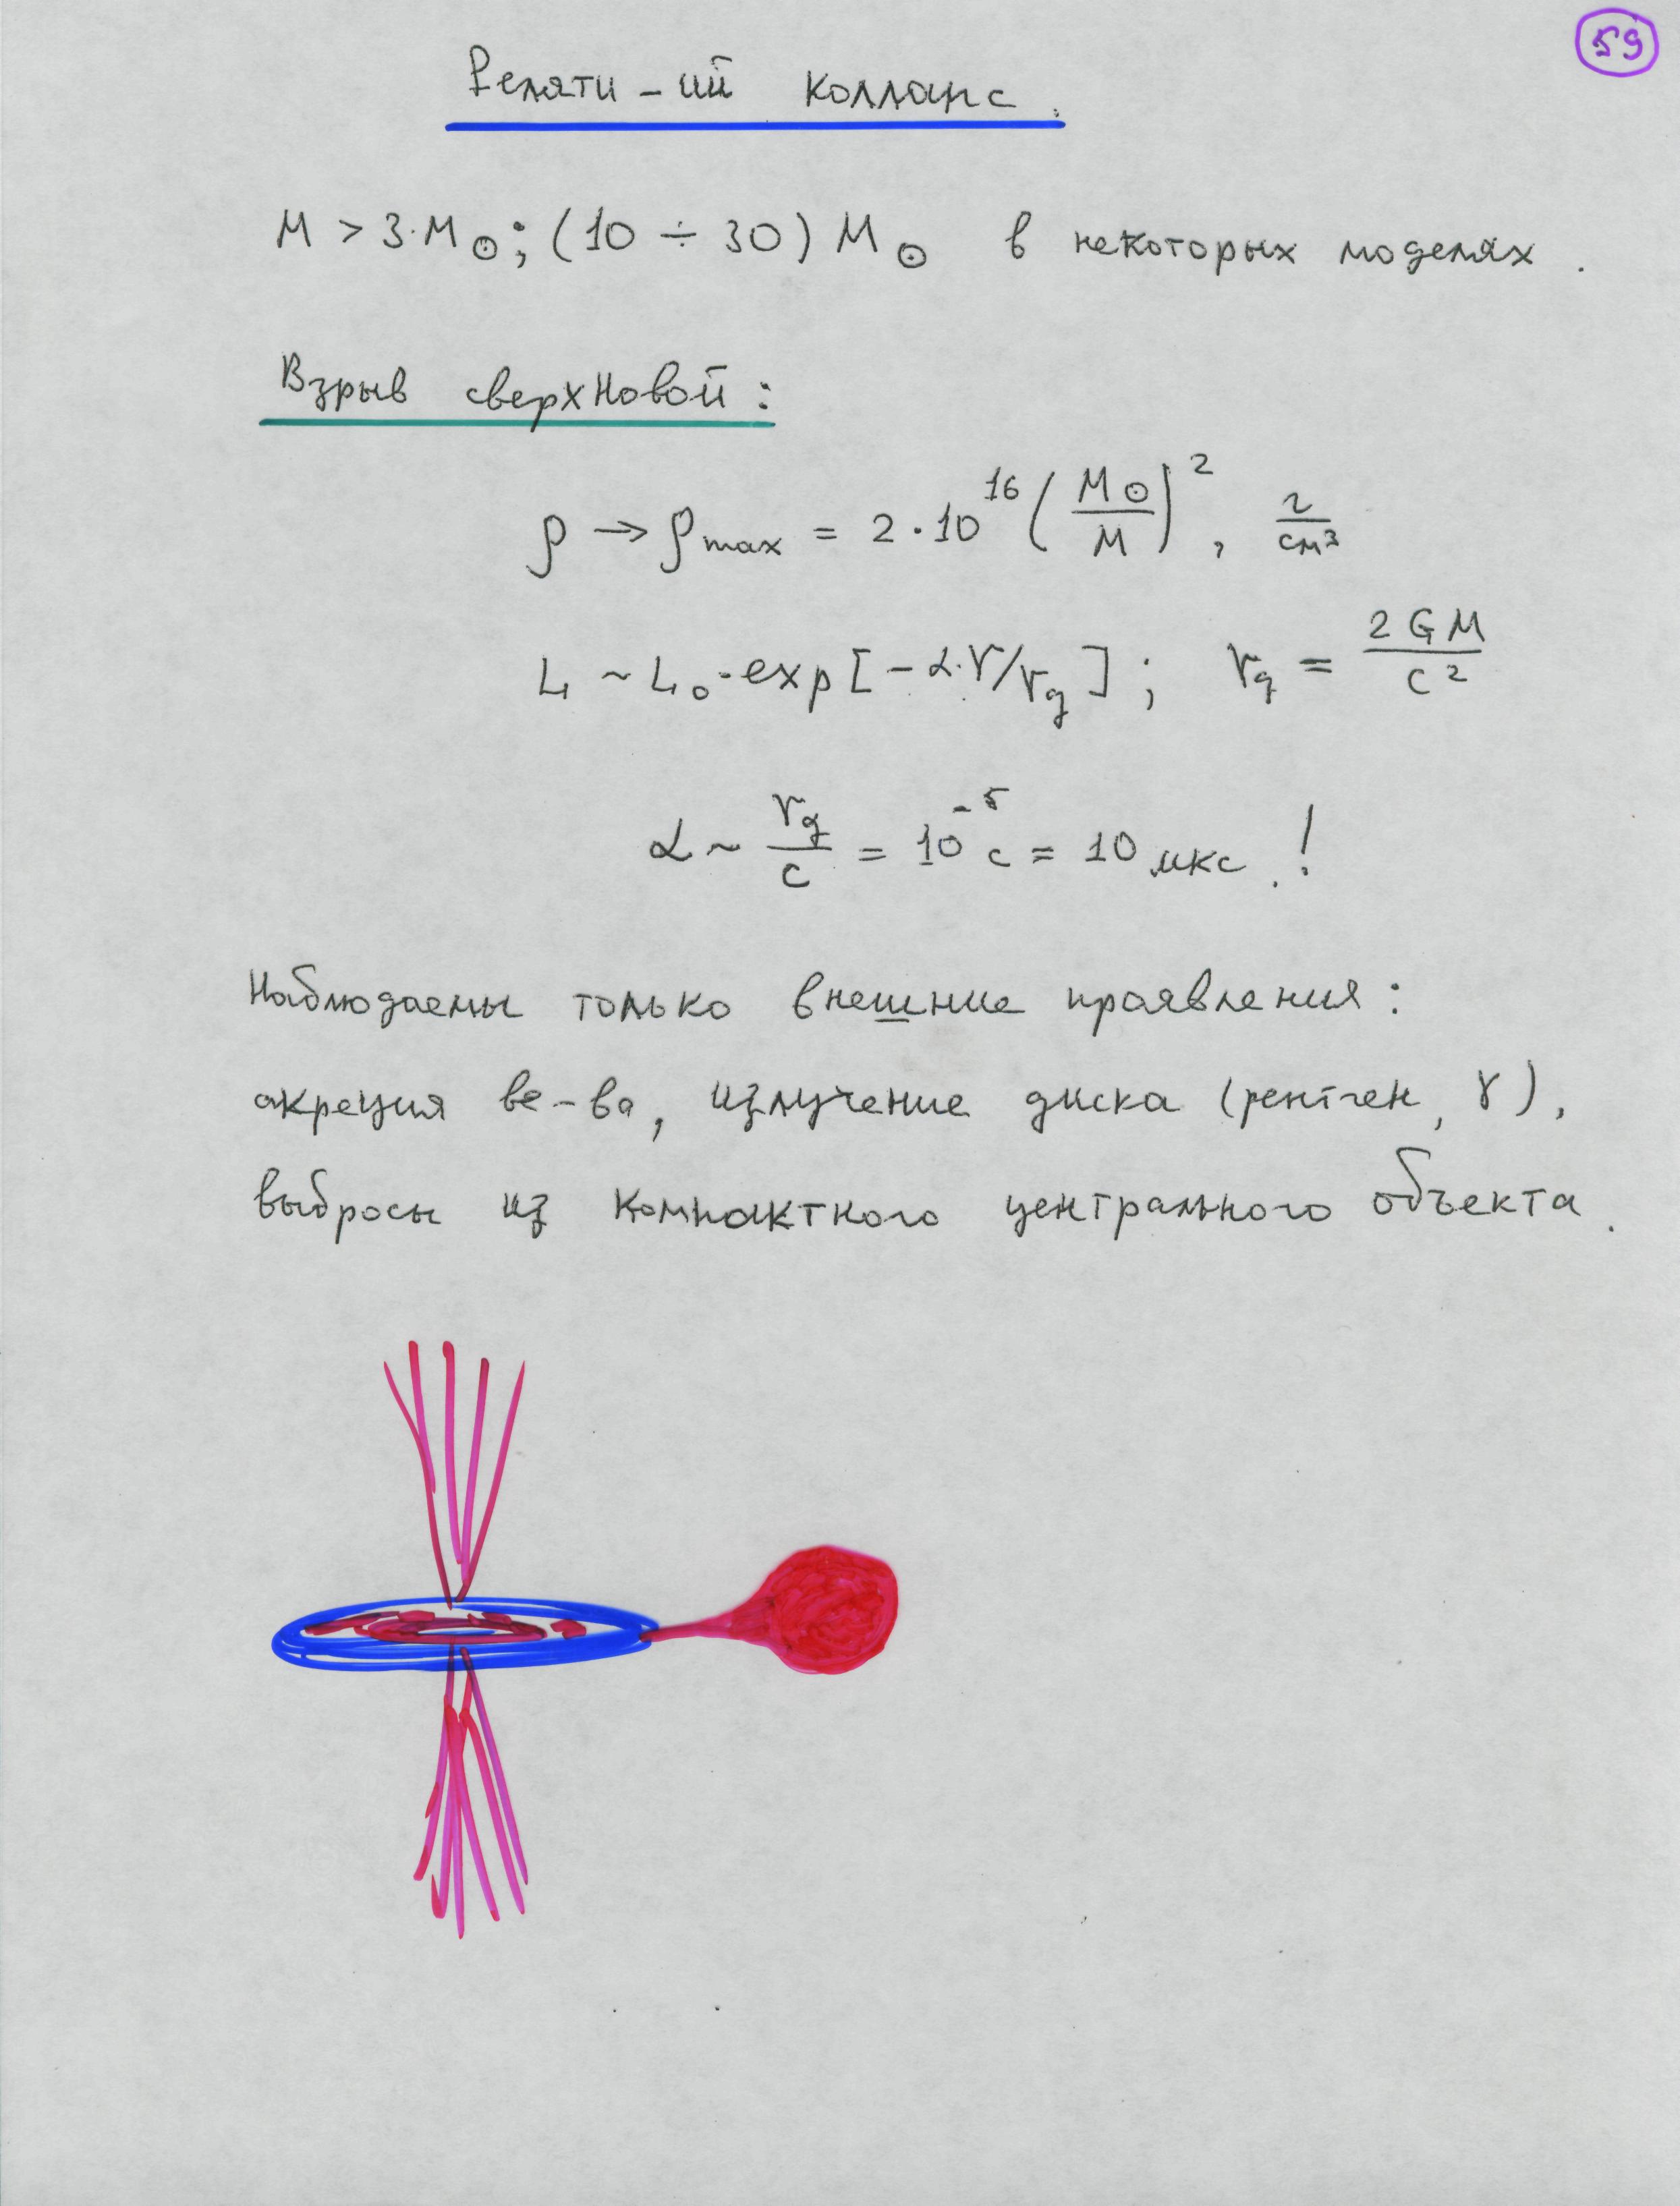 59
Реляти-ий коллапс.
M > 3·M⊙; (10 ÷ 30) M⊙ в некоторых моделях.
Взрыв сверхновой:
ρ → ρmax = 2·10^16 (M⊙/M)^2, г/см^3
L ~ L₀·exp[-α·r/rg]; rg = 2GM/c^2
α ~ rg/c = 10^-5 с = 10 мкс.!
Наблюдаемы только внешние проявления:
акреция ве-ва, излучение диска (рентген, γ),
выбросы из компактного центрального объекта.